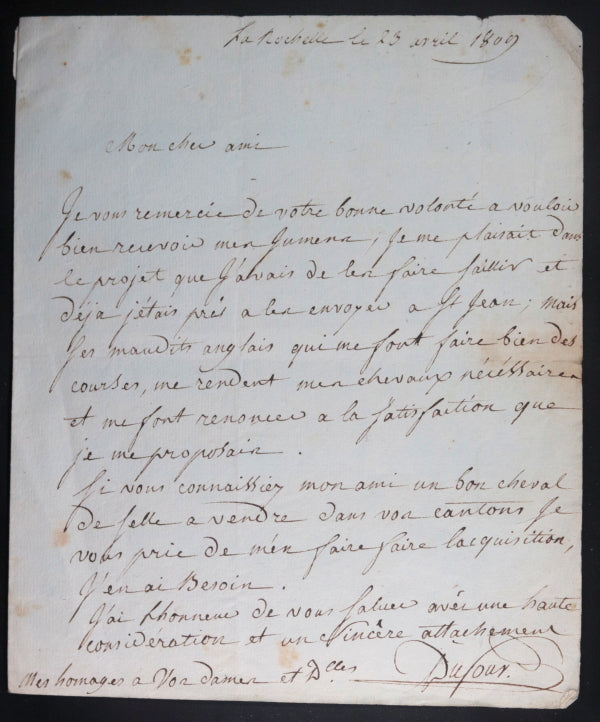 La Rochelle le 23 avril 1809
Mon cher ami
Je vous remercie de votre bonne volonté a vouloir
bien recevoir mes Jumens, Je me plaisait dans
le projet que J'avais de les faire saillir et
déja j'étais prés a les envoyer a St Jean; mais
ses maudits anglais qui me font faire bien des
courses, me rendent mes chevaux nécéssaires
et me font renoncer a la satisfaction que
je me proposais.
Si vous connaissiez mon ami un bon cheval
de selle a vendre dans vos cantons Je
vous prie de m'én faire faire lacquisition,
J'en ai Besoin.
J'ai l'honneur de vous saluer avéc une haute
considération et un sincère attachement
Mes homages à Vos dames et Dlles Dufour.